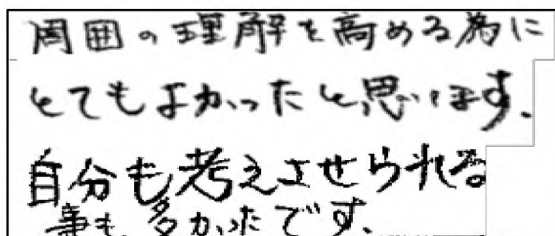 周囲の理解を高める為に
とてもよかったと思います.
自分も考えさせられる
事も多かったです.